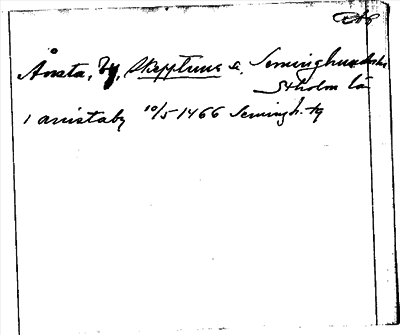 Årsta, by, Skepptuna s., Seminghundra hd
Stholm län
i aristaby 10/5 1466 Semingh. tg